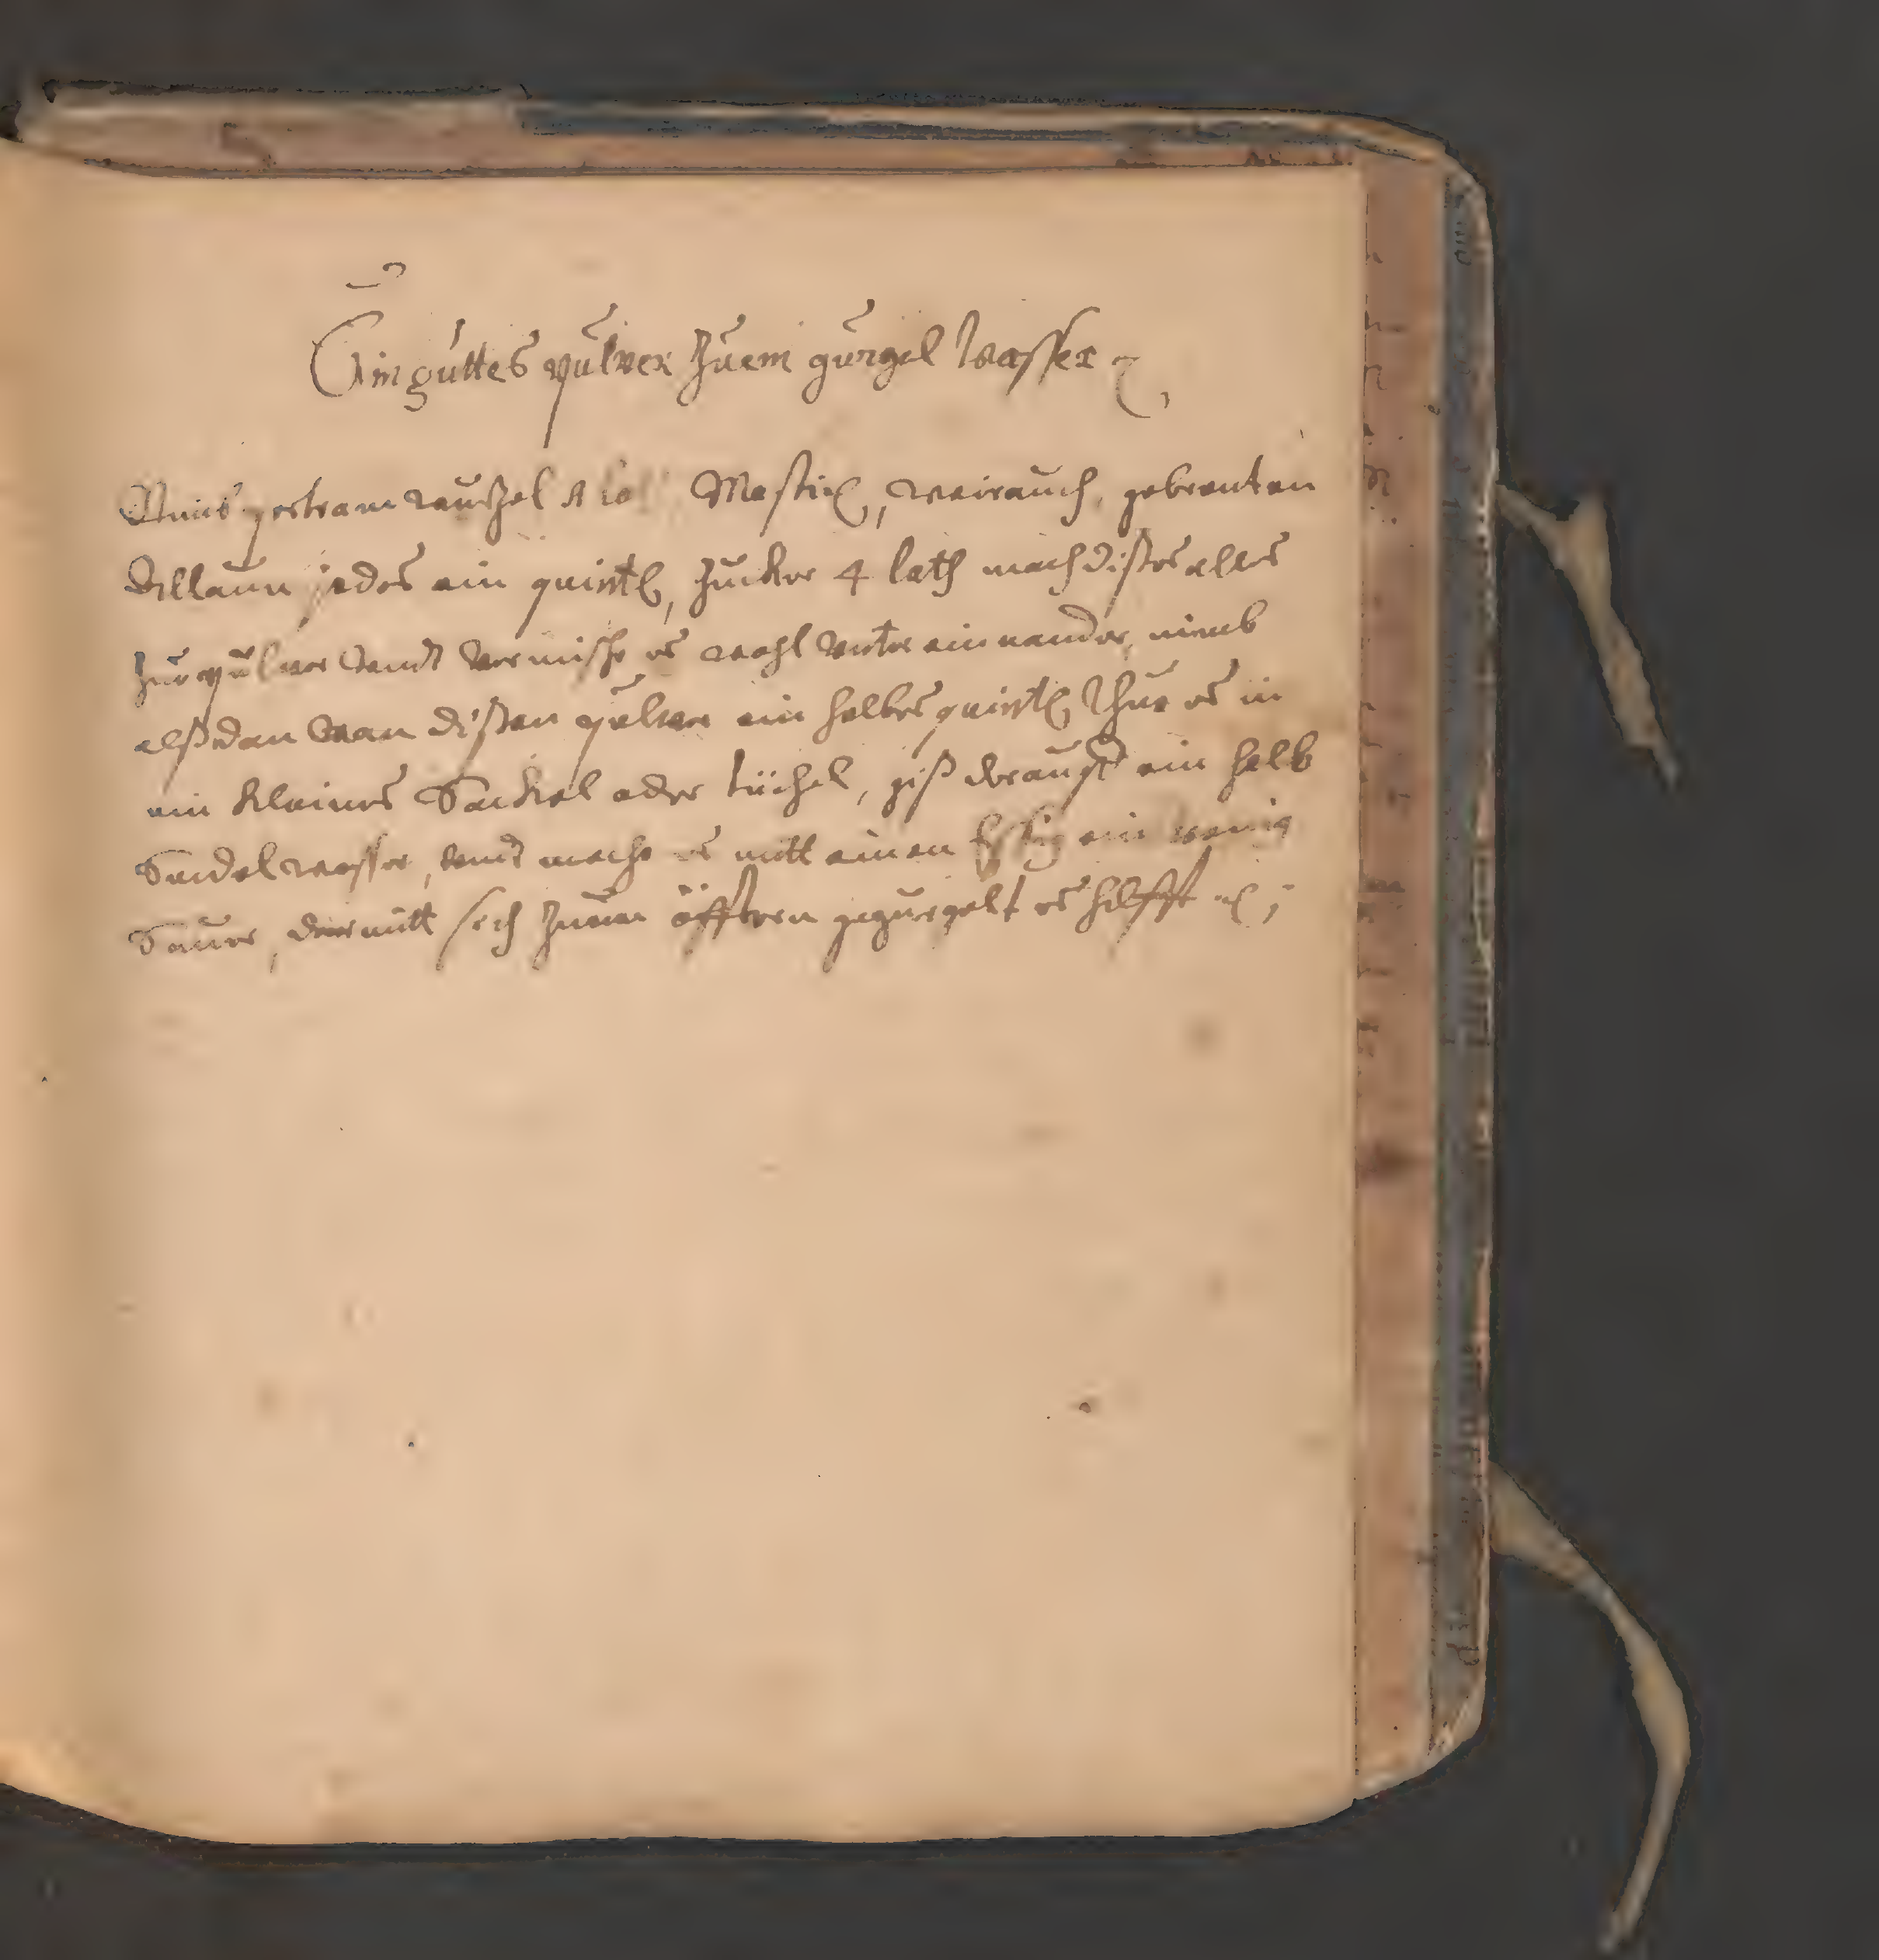 Ein guttes pulver Zuem gurgel Wasser
Anis pertram wurzel Mastix, weirauch, gebrenten
Allaun jedes ein quintl, Zucker 4 loth mach dißes alles
Zue pulver vndt vermische es wohl vnter einnander, nimb
alßdan von dißen pulver ein halbes quintl thue es in
ein kleines Säckel oder tüchel, giß darauff ein halb
Seidel wasser, vndt mache es mitt einen Essig ein wenig
Sauer, darmitt sich Zum öfftern gegurgelt es hilfft